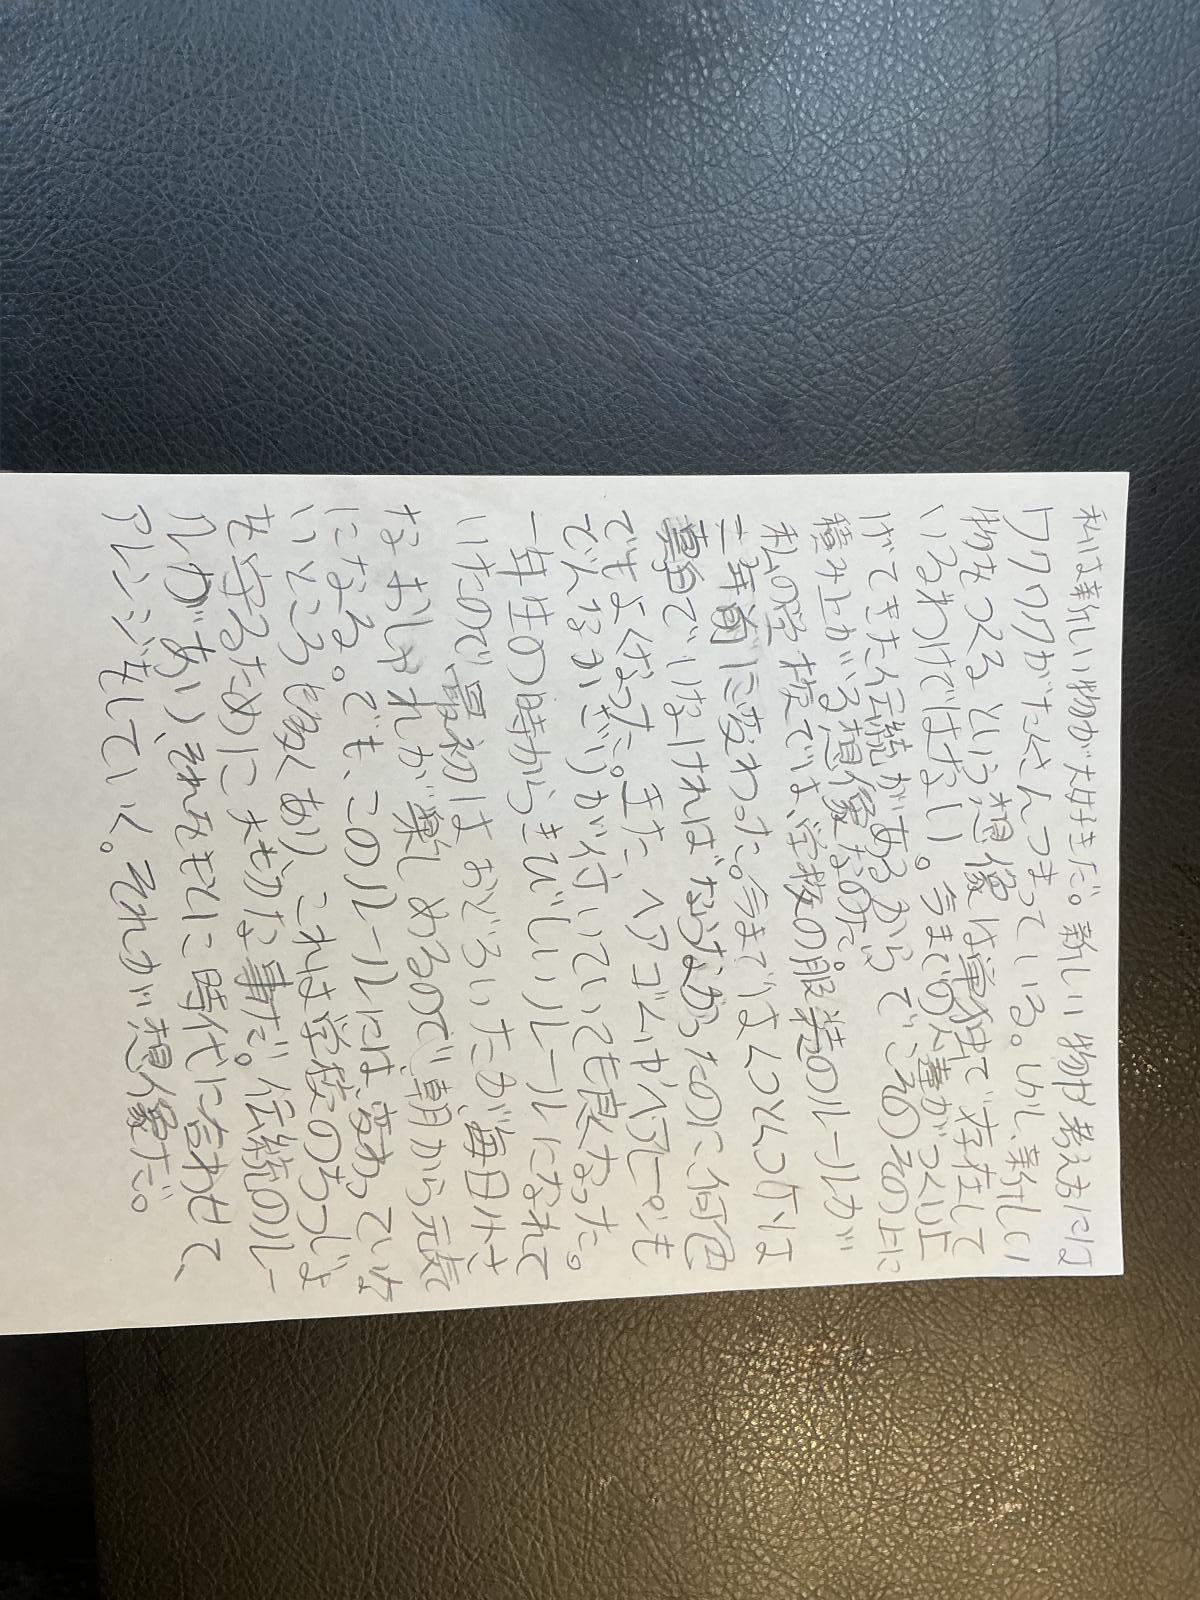 私は新しい物が大好きだ。新しい物や考え方には
ワクワクがたくさんつまっている。しかし、新しい
物をつくるという想像は単独で存在して
いるわけではない。今までの人達がつくり上
げてきた伝統があるからで、そのその上に
積み上がる想像なのだ。
私の学校では、学校の服装のルールが
二年前に変わった。今まではくつとくつ下は
でなければならなかったのに何色
でもよくなった。また、ヘアゴムやヘアピンも
どんなかざりが付いていても良くなった。
一年生の時からきびしいルールになれて
いたので最初はおどろいたが、毎日小さ
なおしゃれが楽しめるので朝から元気
になる。でも、このルールには変わっていな
いところも多くあり、これは学校のちつじょ
を守るために大切な事だ。伝統のルー
ルがあり、それをもとに時代に合わせて、
アレンジをしていく。それが想像だ。